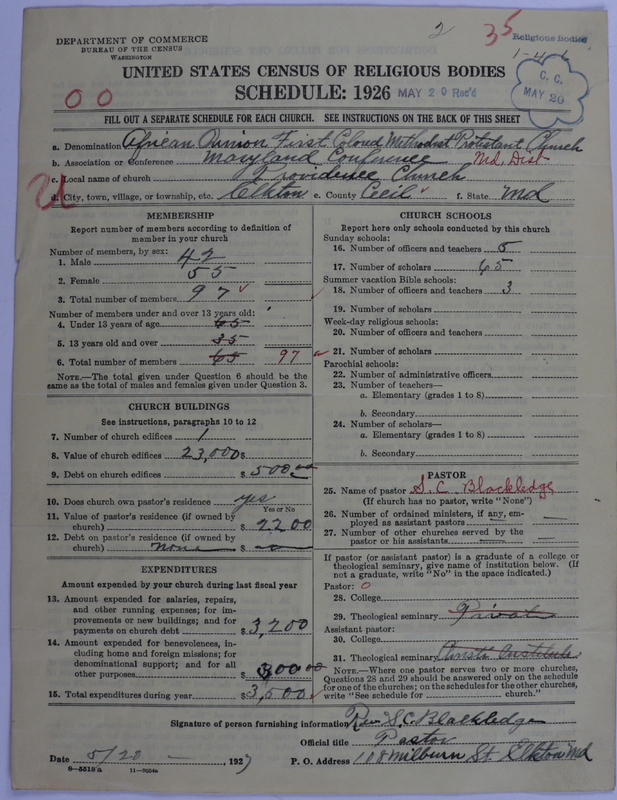 2 35 Religious Bodies
DEPARTMENT OF COMMERCE
BUREAU OF THE CENSUS
WASHINGTON
UNITED STATES CENSUS OF RELIGIOUS BODIES
C. C.
MAY 20
SCHEDULE: 1926 MAY 20 Rec'd
0 0
FILL OUT A SEPARATE SCHEDULE FOR EACH CHURCH. SEE INSTRUCTIONS ON THE BACK OF THIS SHEET
a. Denomination African Union First Colored Methodist Protestant Church
b. Association or Conference Maryland Conference Md. Dist
c. Local name of church Providence Church
d. City, town, village, or township, etc. Elkton e. County Cecil f. State Md
MEMBERSHIP
Report number of members according to definition of
member in your church
Number of members, by sex:
1. Male 42
2. Female 55
3. Total number of members 97
Number of members under and over 13 years old:
4. Under 13 years of age 65
5. 13 years old and over 35
6. Total number of members 65 97
NOTE.—The total given under Question 6 should be
same as the total of males and females given under Question 3.
CHURCH BUILDINGS
See instructions, paragraphs 10 to 12
7. Number of church edifices 1
8. Value of church edifices 23,000 $
9. Debt on church edifices $ 500.00
10. Does church own pastor's residence yes
Yes or No
11. Value of pastor's residence (if owned by
church) $ 2200
12. Debt on pastor's residence (if owned by
church) none $
EXPENDITURES
Amount expended by your church during last fiscal year
13. Amount expended for salaries, repairs,
and other running expenses; for im-
provements or new buildings; and for
payments on church debt $ 3,200
14. Amount expended for benevolences, in-
cluding home and foreign missions; for
denominational support; and for all
other purposes $ 300.00
15. Total expenditures during year $ 3,500
CHURCH SCHOOLS
Report here only schools conducted by this church
Sunday schools:
16. Number of officers and teachers 5
17. Number of scholars 65
Summer vacation Bible schools:
18. Number of officers and teachers 3
19. Number of scholars
Week-day religious schools:
20. Number of officers and teachers
21. Number of scholars
Parochial schools:
22. Number of administrative officers
23. Number of teachers—
a. Elementary (grades 1 to 8)
b. Secondary
24. Number of scholars—
a. Elementary (grades 1 to 8)
b. Secondary
PASTOR
25. Name of pastor S. C. Blackledge
(If church has no pastor, write "None")
26. Number of ordained ministers, if any, em-
ployed as assistant pastors —
27. Number of other churches served by the
pastor or his assistants —
If pastor (or assistant pastor) is a graduate of a college or
theological seminary, give name of institution below. (If
not a graduate, write "No" in the space indicated.)
Pastor: 0
28. College
29. Theological seminary Private
Assistant pastor:
30. College
31. Theological seminary
NOTE.—Where one pastor serves two or more churches,
Questions 28 and 29 should be answered only on the schedule
for one of the churches; on the schedules for the other churches,
write "See schedule for church."
Signature of person furnishing information Rev S. C. Blackledge
Official title Pastor
Date 5/20 — , 1927 P. O. Address 108 Milburn St. Elkton Md
8—5518 a